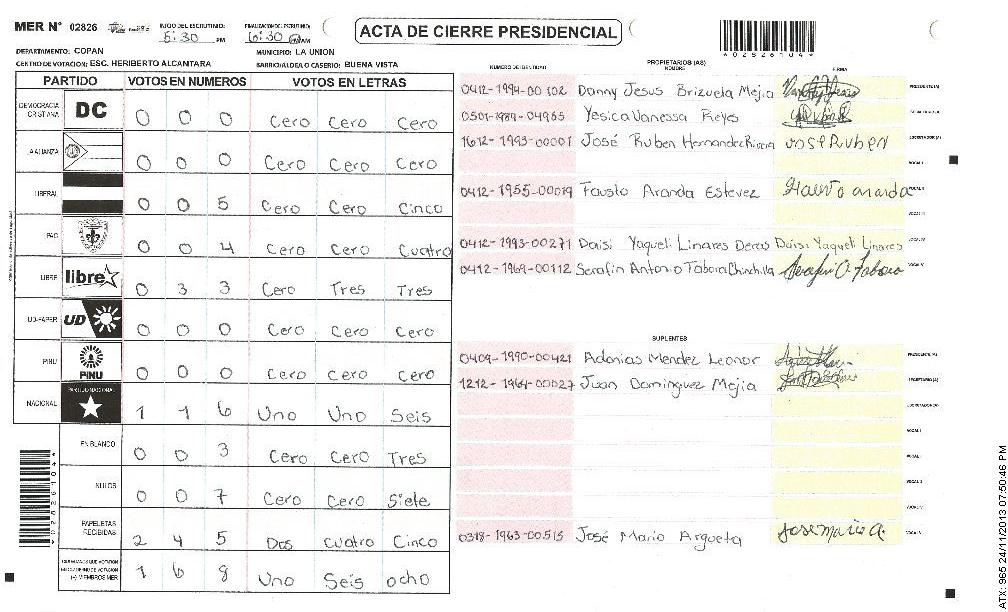 MER N° 02826
INICIO DEL ESCRUTINIO: 5:30 PM
FINALIZACION DEL ESCRUTINIO: 6:30 PM
ACTA DE CIERRE PRESIDENCIAL
*02826104*
DEPARTAMENTO: COPAN
MUNICIPIO: LA UNION
CENTRO DE VOTACION: ESC. HERIBERTO ALCANTARA
BARRIO/ALDEA O CASERIO: BUENA VISTA
PARTIDO VOTOS EN NUMEROS VOTOS EN LETRAS
DEMOCRACIA CRISTIANA DC 0 0 0 Cero Cero Cero
LA ALIANZA 0 0 0 Cero Cero Cero
LIBERAL 0 0 5 Cero Cero Cinco
PAC 0 0 4 Cero Cero Cuatro
LIBRE libre 0 3 3 Cero Tres Tres
UD-FAPER UD 0 0 0 Cero Cero Cero
PINU PINU 0 0 0 Cero Cero Cero
NACIONAL PARTIDO NACIONAL 1 1 6 Uno Uno Seis
EN BLANCO 0 0 3 Cero Cero Tres
NULOS 0 0 7 Cero Cero Siete
PAPELETAS RECIBIDAS 2 4 5 Dos Cuatro Cinco
(+) MIEMBROS MER 1 6 8 Uno Seis ocho
*02826104*
NUMERO DE IDENTIDAD PROPIETARIOS (AS) NOMBRE FIRMA
0412-1994-00102 Danny Jesus Brizuela Mejia PRESIDENTE(A)
0501-1989-04965 Yesica Vanessa Reyes SECRETARIO(A)
1612-1993-00001 José Ruben Hernandez Rivera Jose Ruben ESCRUTADOR(A)
VOCAL I
0412-1955-00019 Fausto Aranda Estevez Fausto aranda VOCAL II
VOCAL III
0412-1993-00271 Daisi Yaqueli Linares Deras Daisi Yaqueli Linares VOCAL IV
0412-1969-00112 Serafin Antonio Tabora Chinchilla Serafin A. Tabora VOCAL V
SUPLENTES
0409-1990-00421 Adonias Mendez Leonor PRESIDENTE(A)
1212-1964-00027 Juan Dominguez Mejia SECRETARIO(A)
ESCRUTADOR(A)
VOCAL I
VOCAL II
VOCAL III
VOCAL IV
0318-1963-00515 José Mario Argueta Jose Mario A. VOCAL V
ATX: 965 24/11/2013 07:50:46 PM